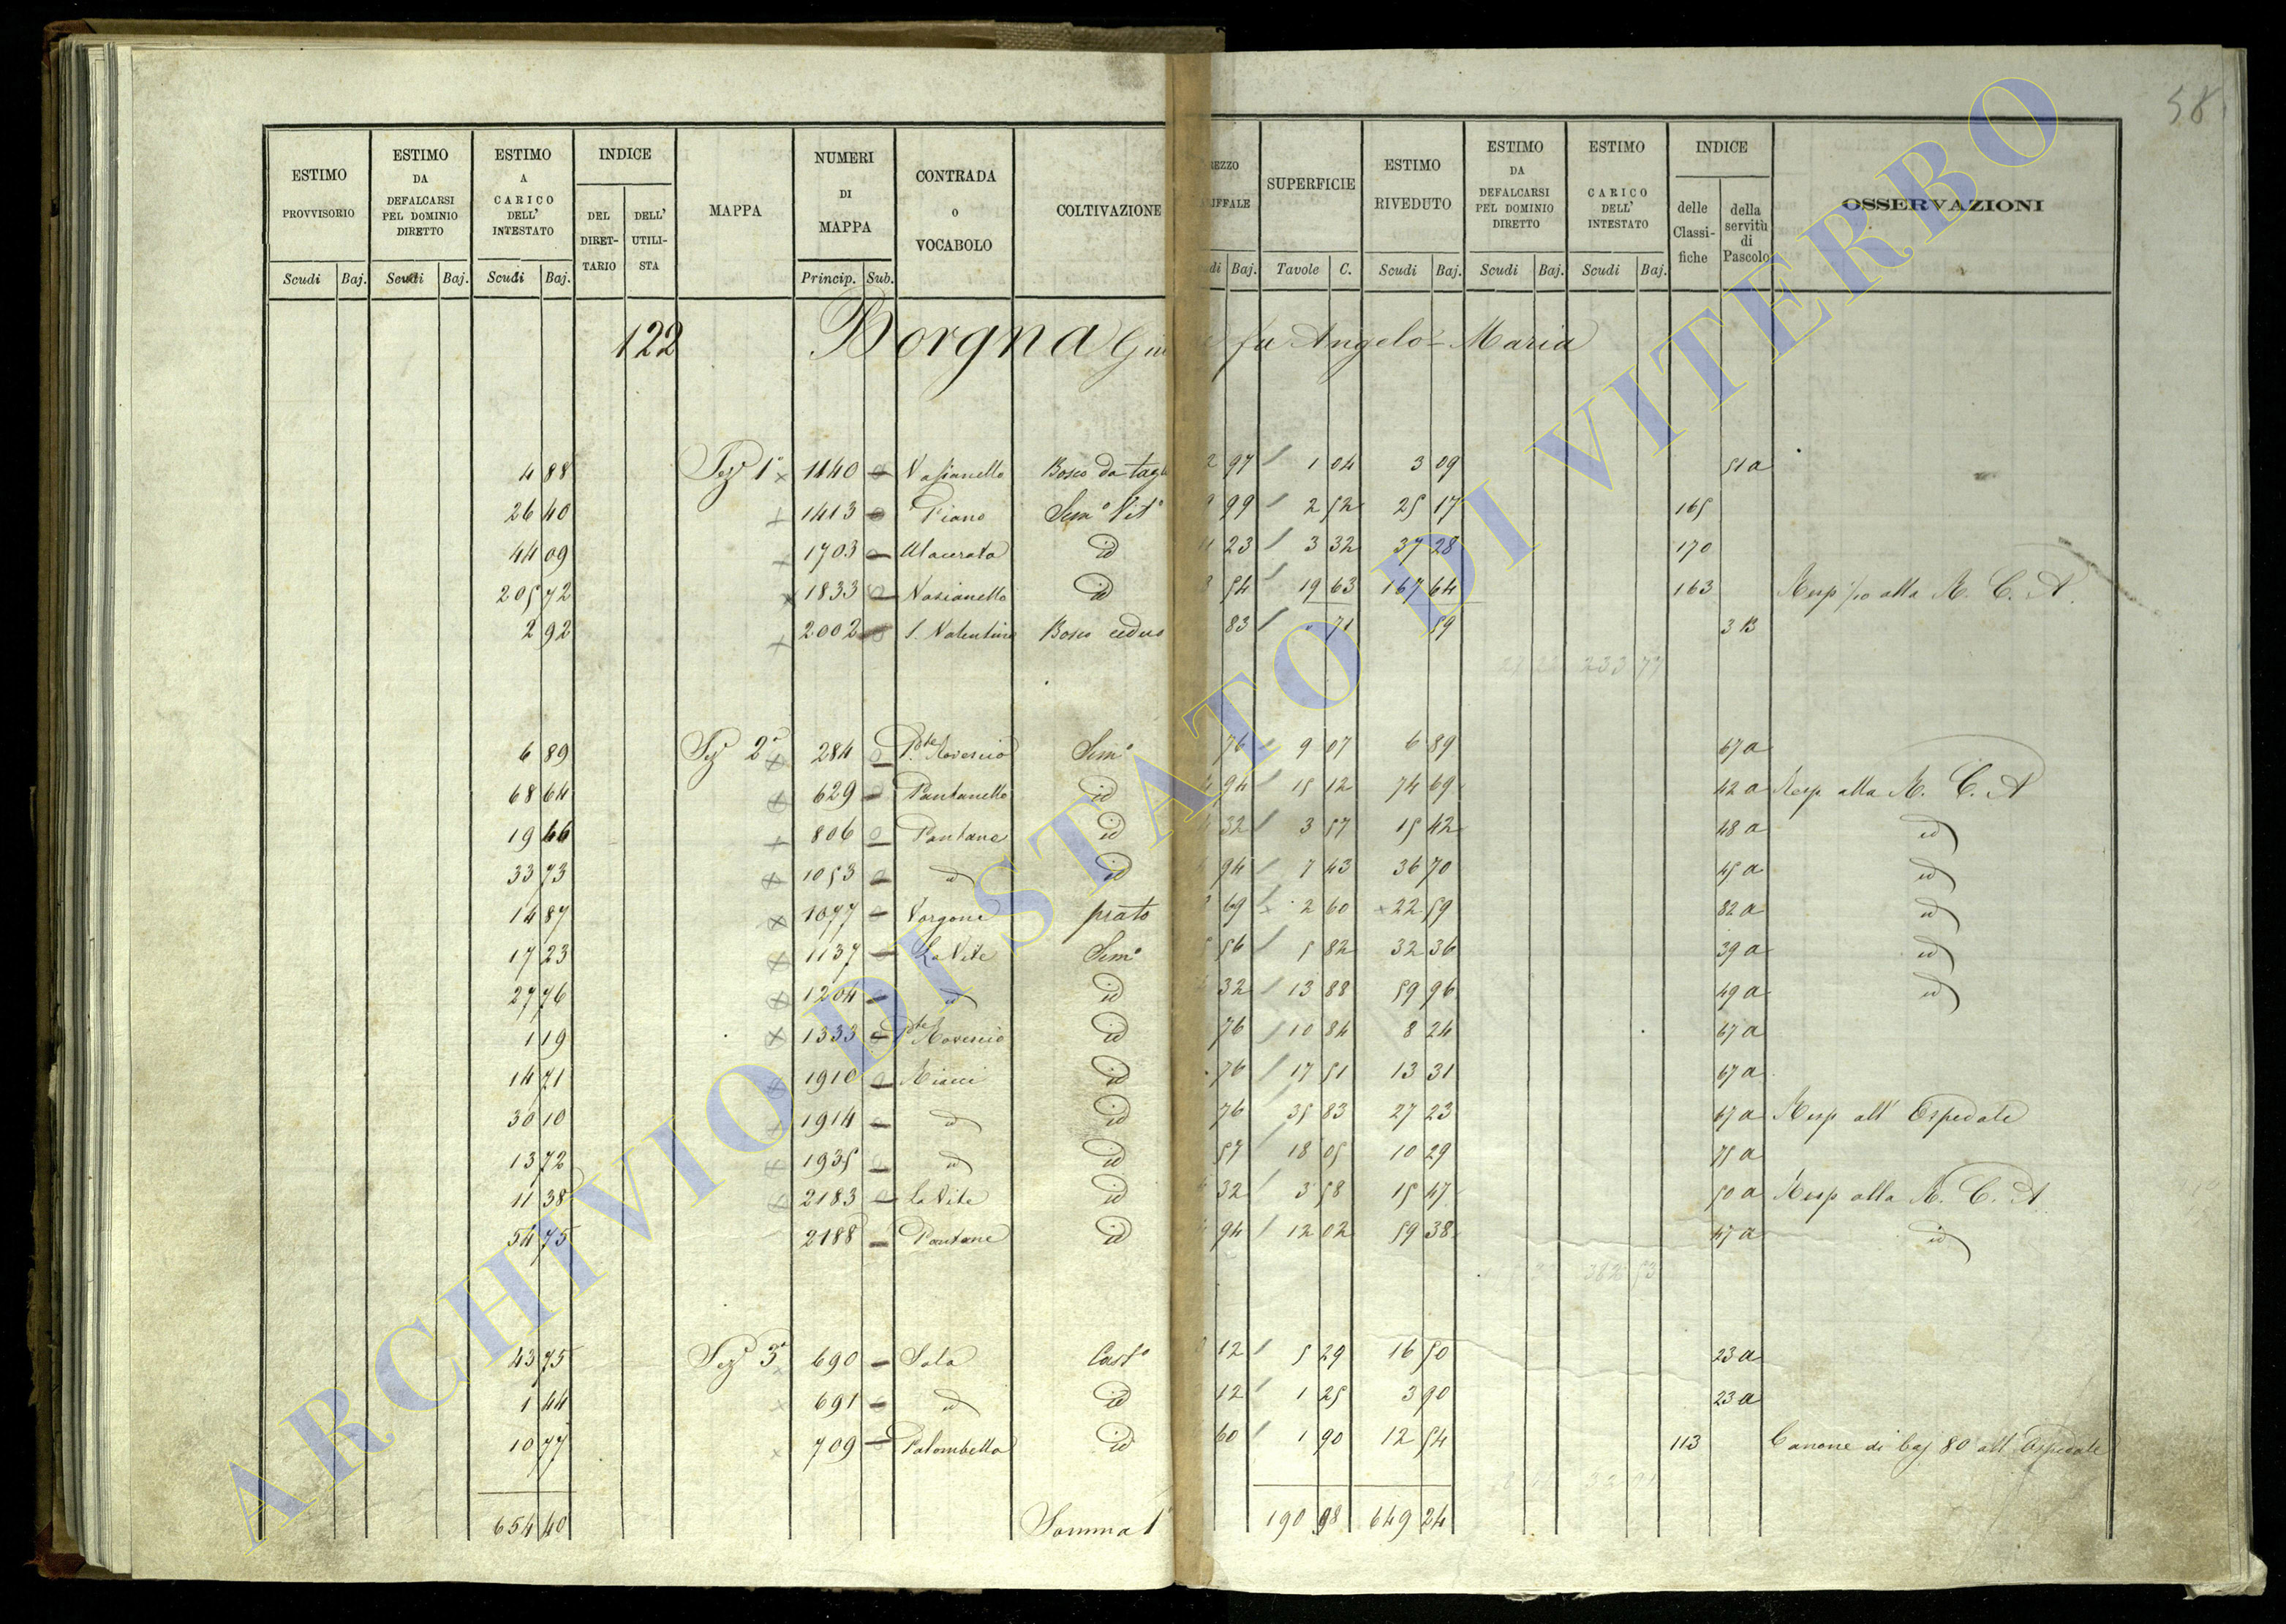 58
ESTIMO PROVVISORIO Scudi Baj.
ESTIMO DA DEFALCARSI PEL DOMINIO DIRETTO Scudi Baj.
ESTIMO A CARICO DELL' INTESTATO Scudi Baj.
INDICE DEL DIRETTARIO DELL' UTILISTA
MAPPA
NUMERI DI MAPPA Princip. Sub.
CONTRADA o VOCABOLO
COLTIVAZIONE
REZZO RIFFALE di Baj.
SUPERFICIE Tavole C.
ESTIMO RIVEDUTO Scudi Baj.
ESTIMO DA DEFALCARSI PEL DOMINIO DIRETTO Scudi Baj.
ESTIMO CARICO DELL' INTESTATO Scudi Baj.
INDICE delle Classifiche della servitù di Pascolo
OSSERVAZIONI
122 Borgna Giu fu Angelo Maria
4 88 Seze 1a 1140 Vasianello Bosco da tagl 2 97 1 04 3 09 51a
26 40 1413 Piano Semo Vito 99 2 52 25 17 165
44 09 1703 Macerata id 23 3 32 37 28 170
205 72 1833 Vasianello id 54 19 63 167 64 163 Resp alla R. C. A.
2 92 2002 S. Valentino Bosco ceduo 83 71 59 3 B
233 77
6 89 Seze 2a 284 Pte Rovescio Semo 76 9 07 6 89 67a
68 64 629 Pantanello id 94 15 12 74 69 42a Resp alla R. C. A
19 66 806 Pantane id 32 3 57 15 42 48a id
33 73 1053 id id 94 7 43 36 70 45a id
14 87 1077 Vorgone prato 69 2 60 22 59 82a id
17 23 1137 La Vite Semo 56 5 82 32 36 39a id
27 76 1204 id id 32 13 88 59 96 49a id
1 19 1333 Pte Rovescio id 76 10 84 8 24 67a
14 71 1910 id 76 17 51 13 31 67a
30 10 1914 id id 76 35 83 27 23 67a Resp all' Ospedale
13 72 1935 id id 57 18 05 10 29 75a
11 38 2183 La Vite id 32 3 58 15 47 50a Resp alla R. C. A
54 75 2188 Pantane id 94 12 02 59 38 47a id
382 53
43 75 Seze 3a 690 Sala Casto 12 5 29 16 50 23a
1 44 691 id id 12 1 25 3 90 23a
10 77 709 Palombella id 60 1 90 12 54 113 Canone di baj 80 all' Ospedale
654 40 Somma 190 98 649 24
ARCHIVIO DI STATO DI VITERBO